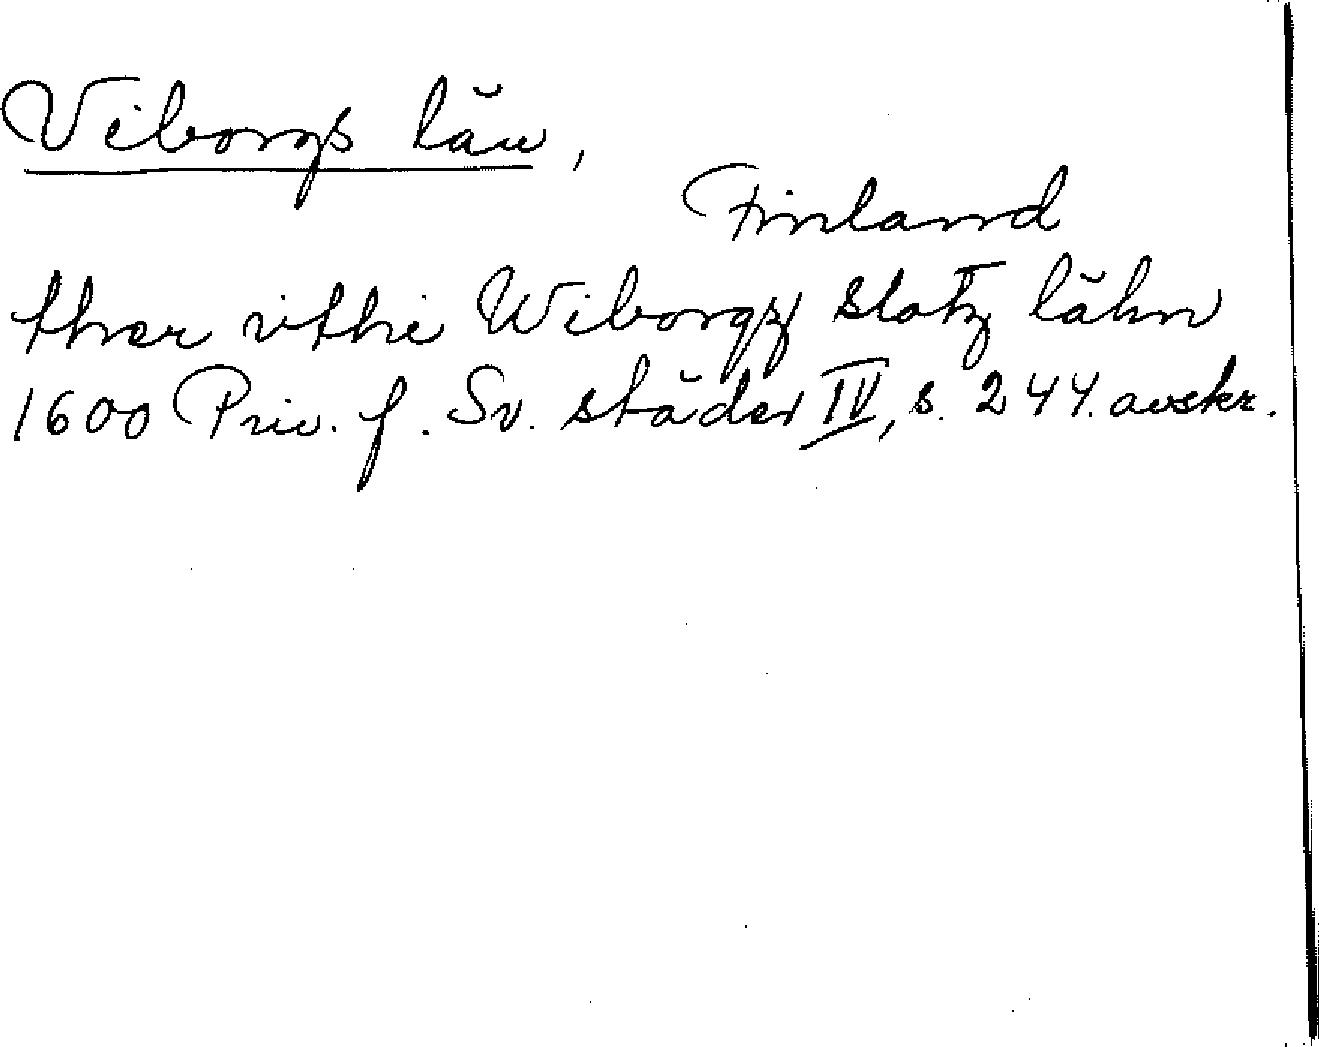 Viborgs län,
Finland
ther vthi Wiborgz slotz lähn
1600 Priv. f. Sv. städer IV, s. 244. avskr.